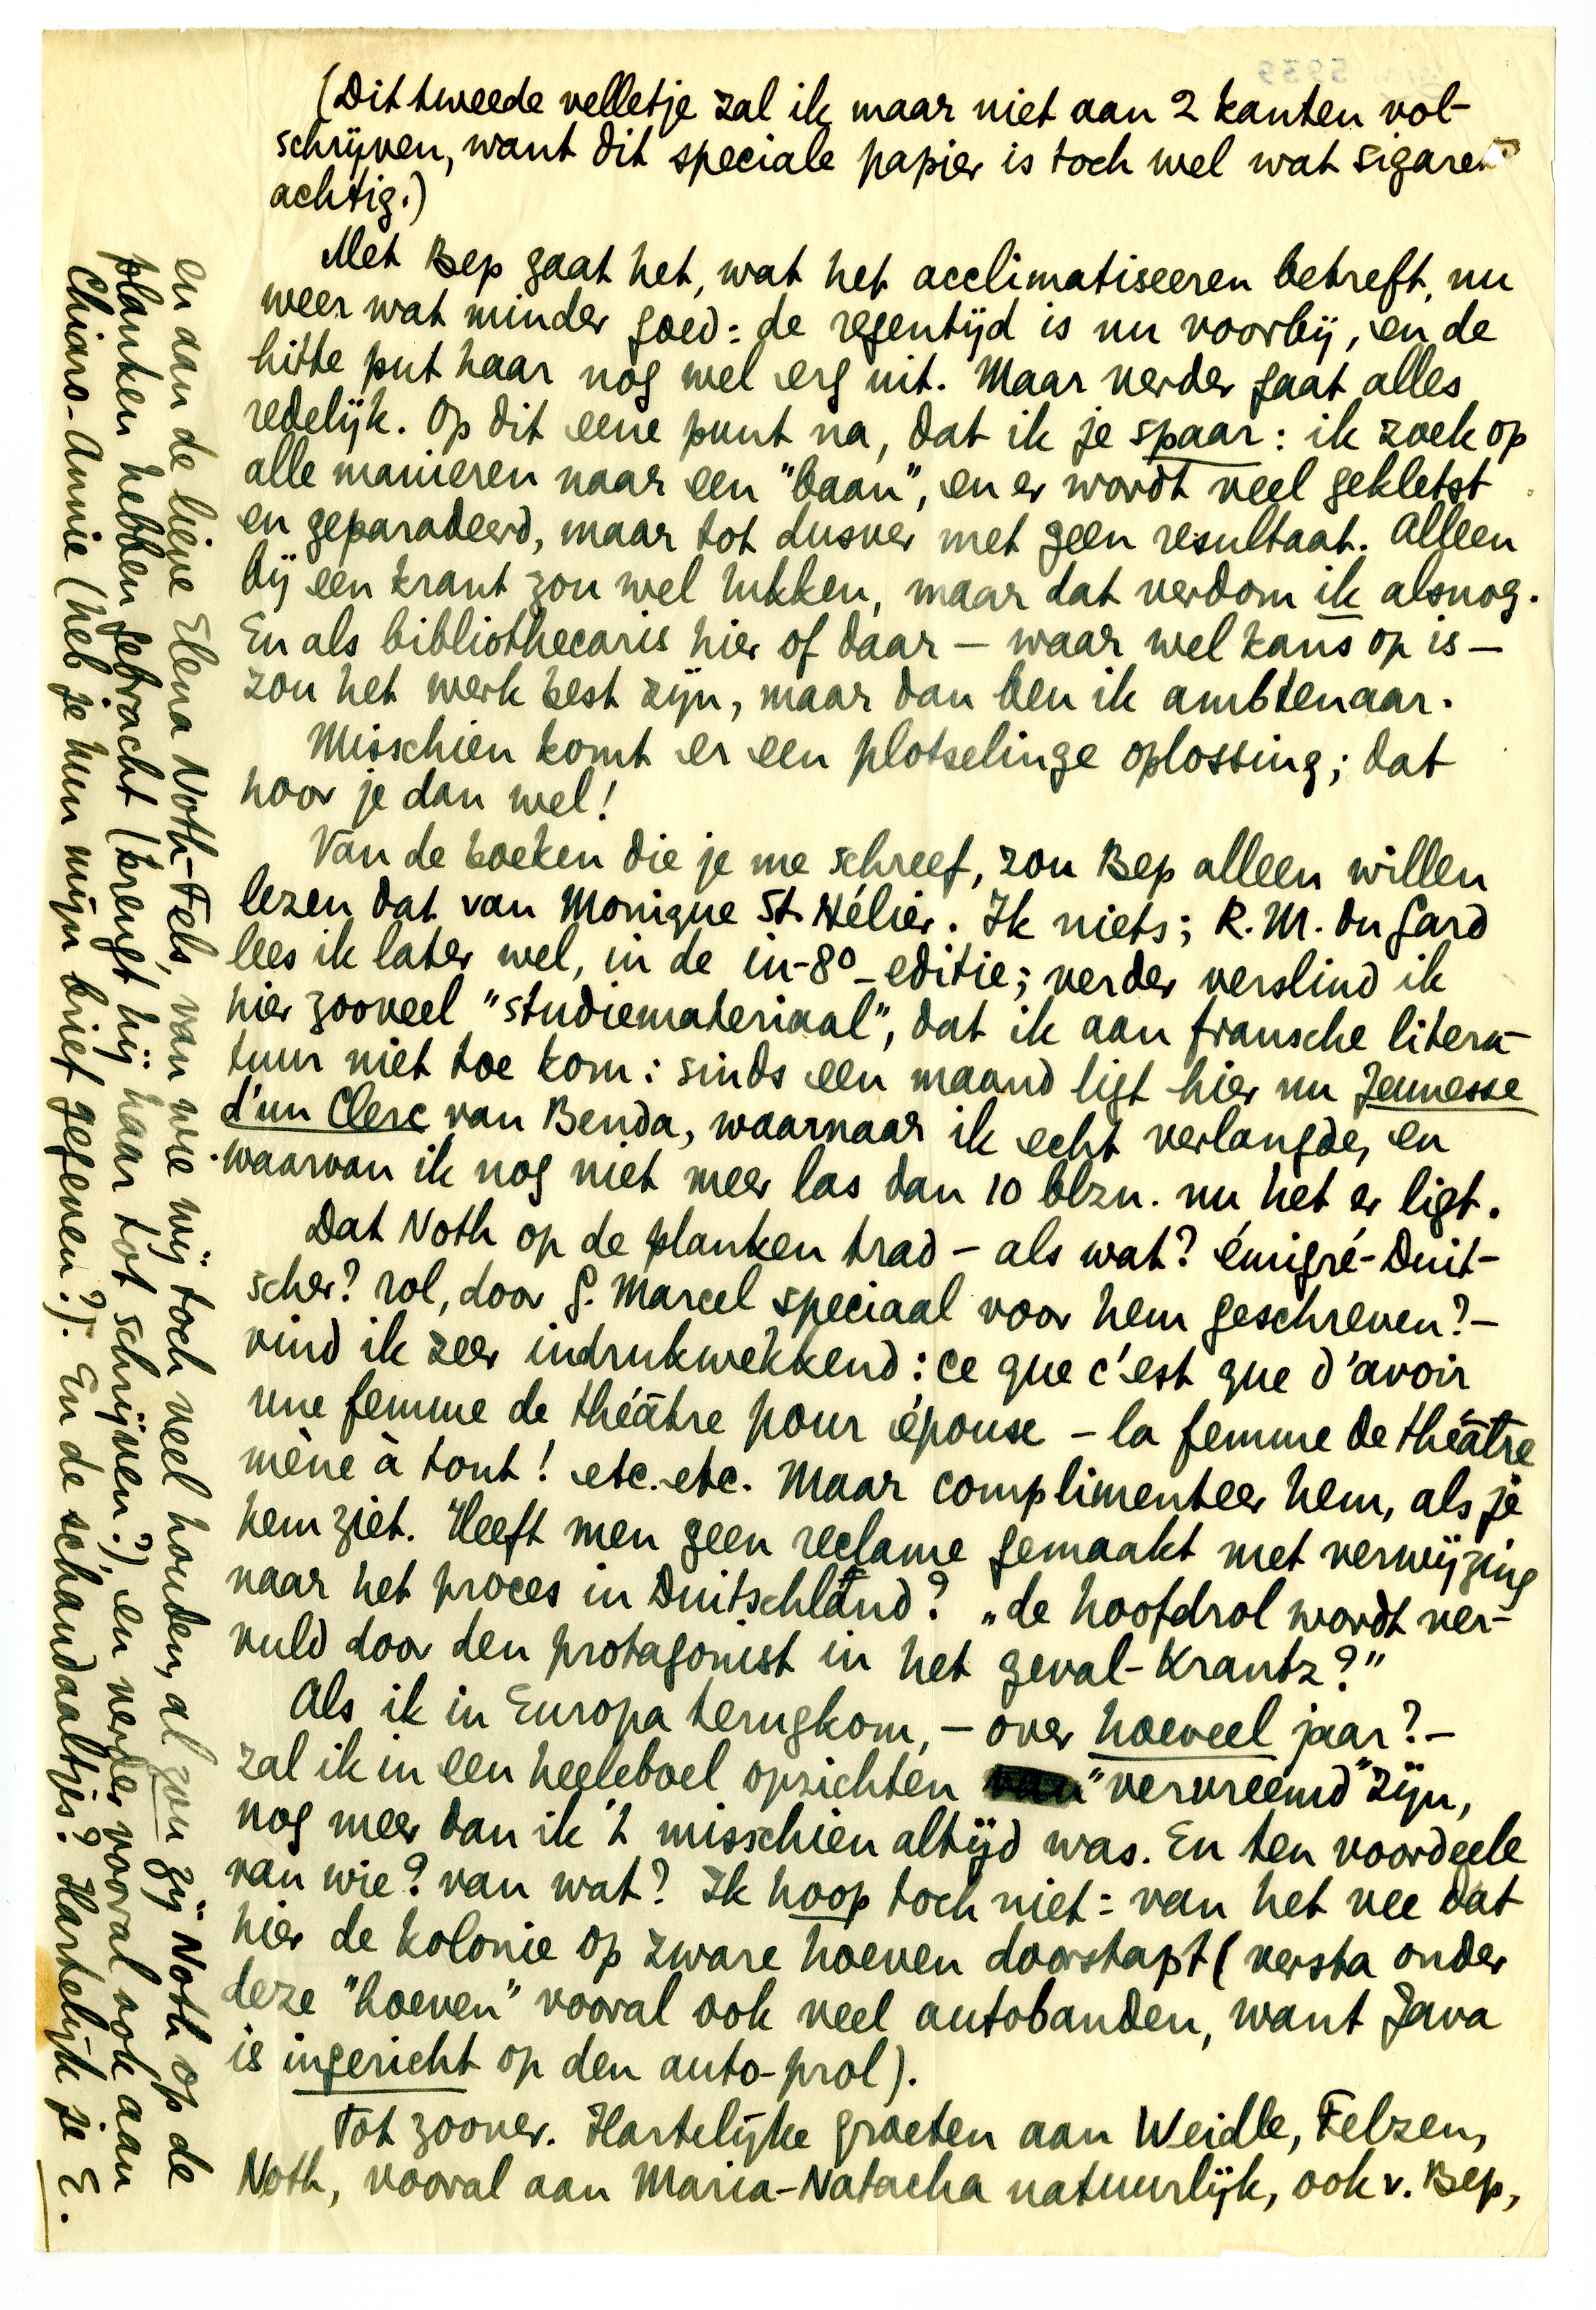 (Dit tweede velletje zal ik maar niet aan 2 kanten vol-
schrijven, want dit speciale papier is toch wel wat sigaret
achtig.)
Met Bep gaat het, wat het acclimatiseeren betreft, nu
weer wat minder goed: de regentijd is nu voorbij, en de
hitte put haar nog wel erg uit. Maar verder gaat alles
redelijk. Op dit eene punt na, dat ik je spaar: ik zoek op
alle manieren naar een "baan", en er wordt veel gekletst
en geparadeerd, maar tot dusver met geen resultaat. Alleen
bij een krant zou wel lukken, maar dat verdom ik alsnog.
En als bibliothecaris hier of daar – waar wel kans op is –
zou het werk best zijn, maar dan ben ik ambtenaar.
Misschien komt er een plotselinge oplossing; dat
hoor je dan wel!
Van de boeken die je me schreef, zou Bep alleen willen
lezen dat van Monique St. Hélier. Ik niets; R.M. du Gard
lees ik later wel, in de in-8º-editie; verder verslind ik
hier zooveel "studiemateriaal", dat ik aan fransche litera-
tuur niet toe kom: sinds een maand ligt hier nu Jeunesse
d'un Clerc van Benda, waarnaar ik echt verlangde, en
waarvan ik nog niet meer las dan 10 blzn. nu het er ligt.
Dat Noth op de planken trad – als wat? émigré-Duit-
scher? rol, door G. Marcel speciaal voor hem geschreven? –
vind ik zeer indrukwekkend: ce que c'est que d'avoir
une femme de théâtre pour épouse – la femme de théâtre
mène à tout! etc. etc. Maar complimenteer hem, als je
hem ziet. Heeft men geen reclame gemaakt met verwijzing
naar het proces in Duitschland? „de hoofdrol wordt ver-
vuld door den protagonist in het geval-Krantz?"
Als ik in Europa terugkom, – over hoeveel jaar? –
zal ik in een heeleboel opzichten "vervreemd" zijn,
nog meer dan ik 't misschien altijd was. En ten voordeele
van wie? van wat? Ik hoop toch niet: van het vee dat
hier de kolonie op zware hoeven doorstapt (versta onder
deze "hoeven" vooral ook veel autobanden, want Java
is ingericht op den auto-prol).
Tot zoover. Hartelijke groeten aan Weidle, Felzen,
Noth, vooral aan Maria-Natacha natuurlijk, ook v. Bep,
en aan de lieve Elena Noth-Fels, van wie wij toch veel houden, al zou zij Noth op de
planken hebben gebracht (brengt hij haar tot schrijven?), en verder vooral ook aan
Chiaro-Annie (heb je hun mijn brief gegeven?). En de schandaaltjes? Hartelijk je E.